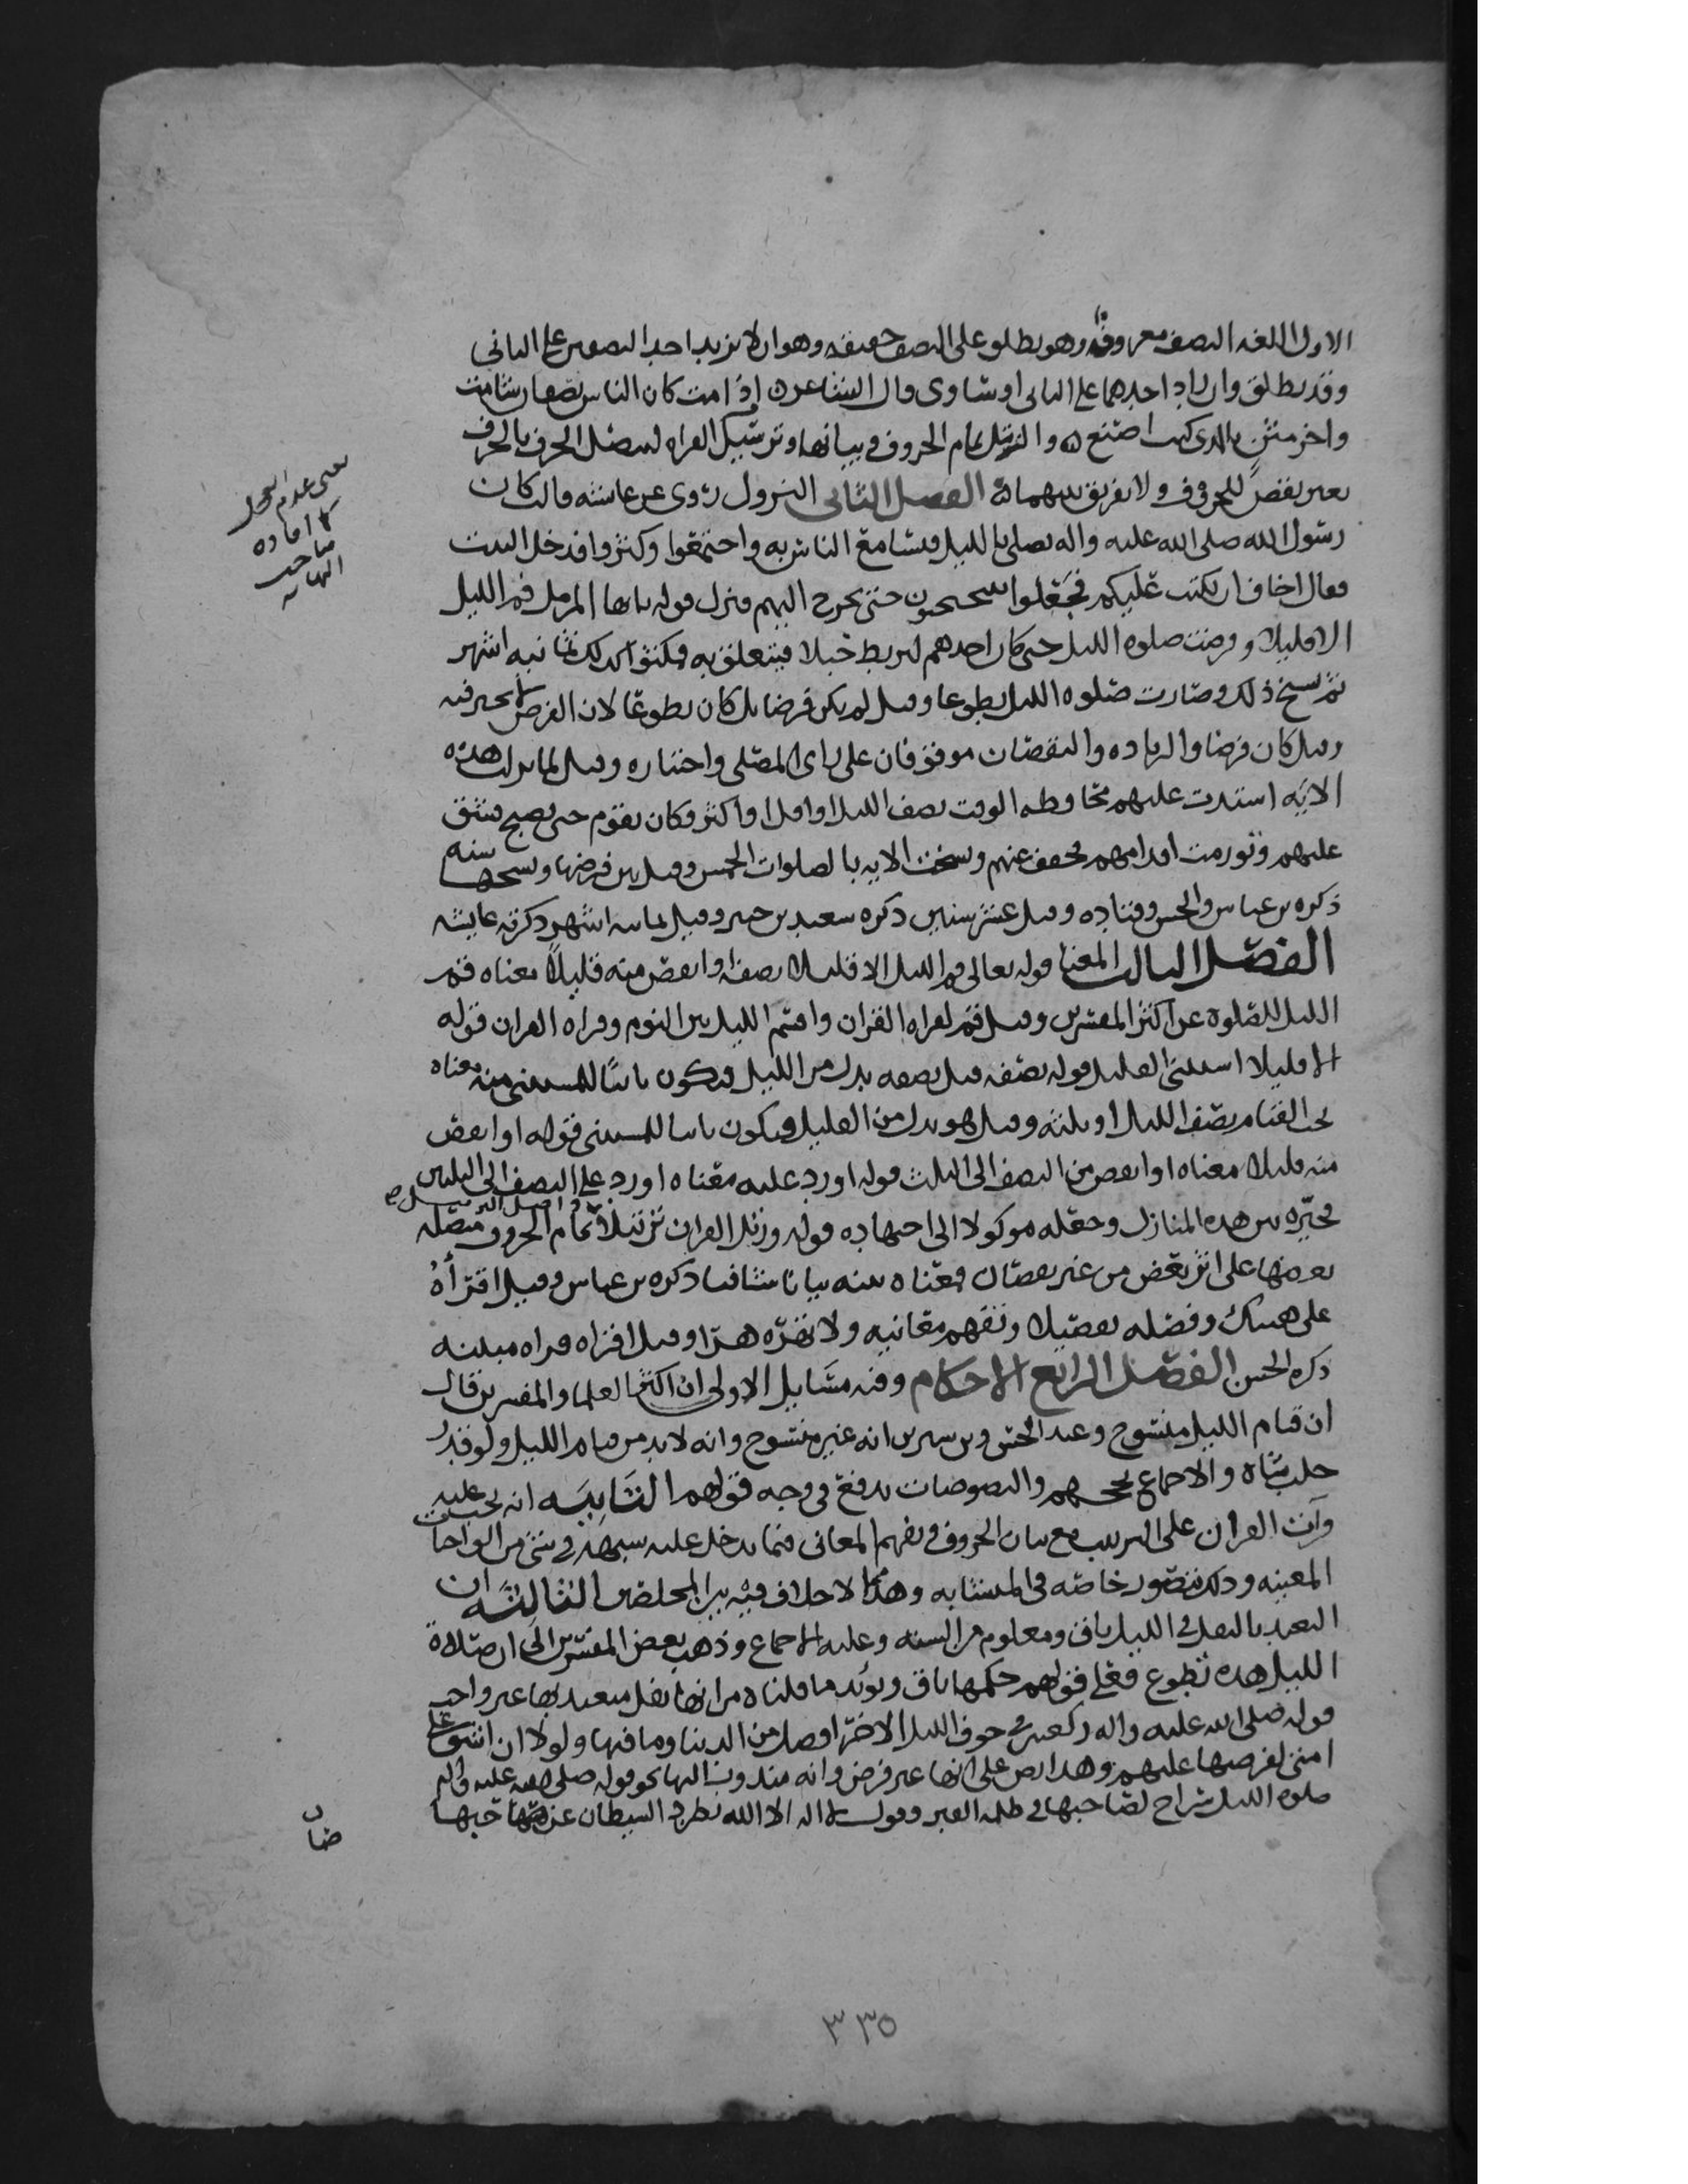 الاول اللغه النصف معروف وهو يطلق على النصف حقيقه وهو ان لا يزيد احد النصفين على الثاني
وقد يطلق وان زاد احدهما على الثاني او ساوى قال الشاعر اذا مت كان الناس نصفان شامت
واخر مثن بالذي كنت اصنع والترتيل تمام الحروف وبيانها وترتيل القراه
بعض للحروف ولا تفريق بينهما الفصل الثاني النزول روى عن عائشه قالت كان
رسول الله صلى الله عليه واله يصلي بالليل فتسامع الناس به واجتمعوا وكثروا فدخل البيت
فقال اخاف ان يكتب عليكم فجعلوا يتنحنحون حتى يخرج اليهم فنزل قوله يايها المزمل قم الليل
الا قليلا وفرضت صلوه الليل حتى كان احدهم ليربط حبلا فيتعلق به فمكثوا كذلك ثمانيه اشهر
ثم نسخ ذلك وصارت صلوه الليل تطوعا وقيل لم يكن فرضا بل كان تطوعا لان الفرض لا يخير فيه
وقيل كان فرضا والزياده والنقصان موقوفان على راى المصلى واختياره وقيل لما نزلت هذه
الايه اشتدت عليهم محافظه الوقت نصف الليل او اقل او اكثر فكان يقوم حتى يصبح فشق
عليهم وتورمت اقدامهم فخفف عنهم ونسخت الايه بالصلوات الخمس وقيل بين فرضها ونسخها سنه
ذكره بن عباس والحسن وقتاده وقيل عشر سنين ذكره سعيد بن جبير وقيل ثمانيه اشهر ذكرته عايشه
الفصل الثالث المعنا قوله تعالى قم الليل الا قليلا نصفه او انقص منه قليلا معناه قم
الليل للصلوة عن اكثر المفسرين وقيل قم لقراه القران واقسم الليل بين النوم وقراه القران قوله
الا قليلا استثنى القليل قوله نصفه قيل نصفه بدل من الليل فيكون بيانا للمستثنى منه معناه
يجب القيام نصف الليل او ثلثه وقيل هو بدل من القليل فيكون بيانا للمستثنى قوله او انقص
منه قليلا معناه او انقص من النصف الى الثلث قوله او زد عليه معناه او زد على النصف الى الثلثين
مخيره بين هذه المنازل وجعله موكولا الى اجتهاده قوله ورتل القران ترتيلا واصل الترتيل تمام الحروف متصله
بعضها على اثر بعض من غير نقصان فمعناه بينه بيانا شافيا ذكره بن عباس وقيل اقرأه
على هينتك وفصله تفصيلا وتفهم معانيه ولا تهذه هذا وقيل اقراه قراه مبينه
ذكره الحسن الفصل الرابع الاحكام وفيه مسايل الاولى ان اكثر العلما والمفسرين قال
ان قيام الليل منسوخ وعند الحسن وبن سيرين انه غير منسوخ وانه لا بد من قيام الليل ولو قدر
حلب شاه والاجماع يحجهم والنصوصات تدفع في وجه قولهم الثانيه انه يجب عليه
قرات القران على الترتيب مع بيان الحروف وتفهم المعاني فيما يدخل عليه سببه في شي من الواجبات
المعينه وذلك يتصور خاصه في المتشابه وهذا مما لا خلاف فيه بين المحصلين الثالثه ان
التعبد بالنفل في الليل باق ومعلوم من السنه وعليه الاجماع وذهب بعض المفسرين الى ان صلاة
الليل هذه تطوع فعلى قولهم حكمها باق ويؤيد ما قلناه من انها نفل متعبد بها غير واجب
قوله صلى الله عليه واله ركعتين في جوف الليل الاخر افضل من الدنيا وما فيها ولولا ان اشق على
امتي لفرضتها عليهم وهذا نص على انها غير فرض وانه مندوب اليها نحو قوله صلى الله عليه واله
صلوه الليل سراج لصاحبها في ظلمه القبر وقول لا اله الا الله يطرد الشيطان عن صاحبها
صاحب
٣٣٥